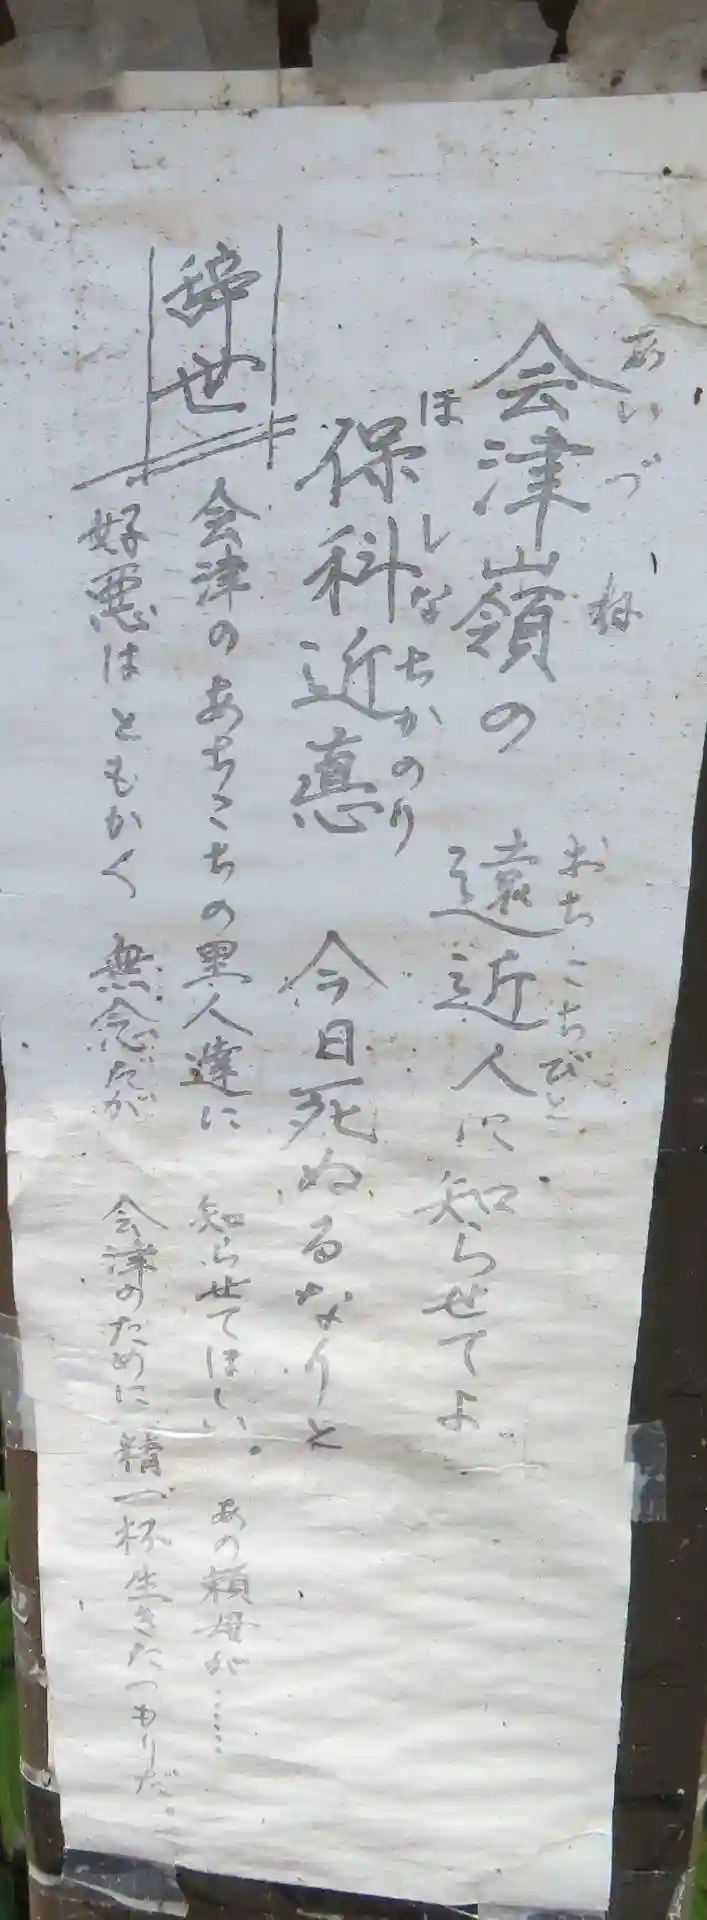 会津嶺の 遠近人に知らせてよ
あいづ ね おちこちびと
保科近悳 今日死ぬるなりと
ほしなちかのり
辞世
会津のあちこちの里人達に 知らせてほしい。 あの頼母が……
好悪はともかく 無念だが 会津のために 精一杯生きたつもりだ。